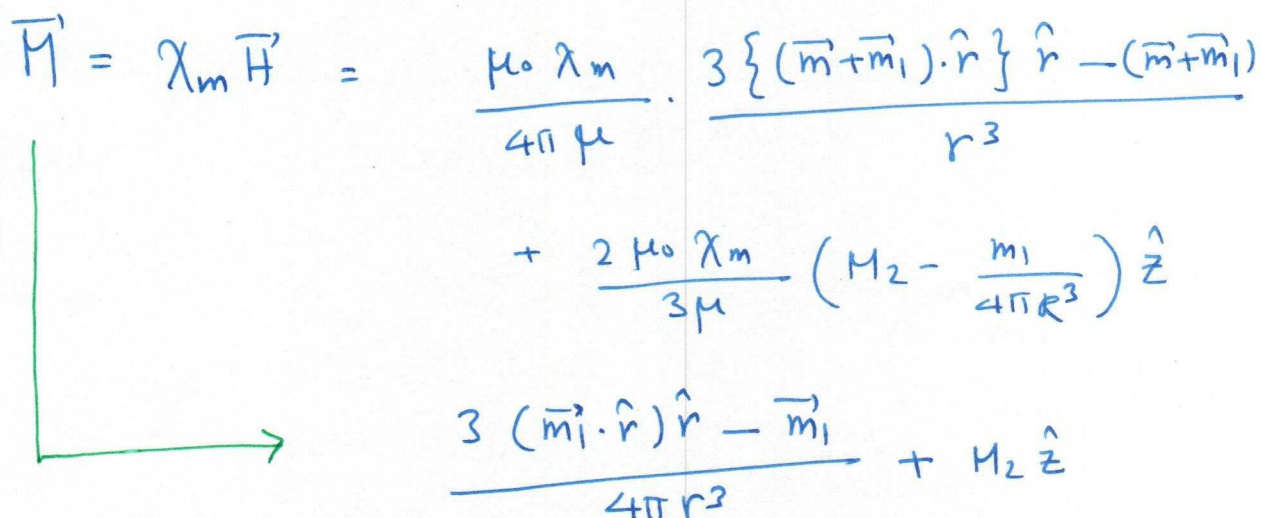 $\vec{M} = \chi_m \vec{H} = \frac{\mu_0 \chi_m}{4\pi\mu} \cdot \frac{3\{(\vec{m}+\vec{m}_1)\cdot\hat{r}\}\hat{r} - (\vec{m}+\vec{m}_1)}{r^3}$
$+ \frac{2\mu_0 \chi_m}{3\mu} \left( M_2 - \frac{m_1}{4\pi R^3} \right) \hat{z}$
$\frac{3(\vec{m}_1\cdot\hat{r})\hat{r} - \vec{m}_1}{4\pi r^3} + M_2 \hat{z}$